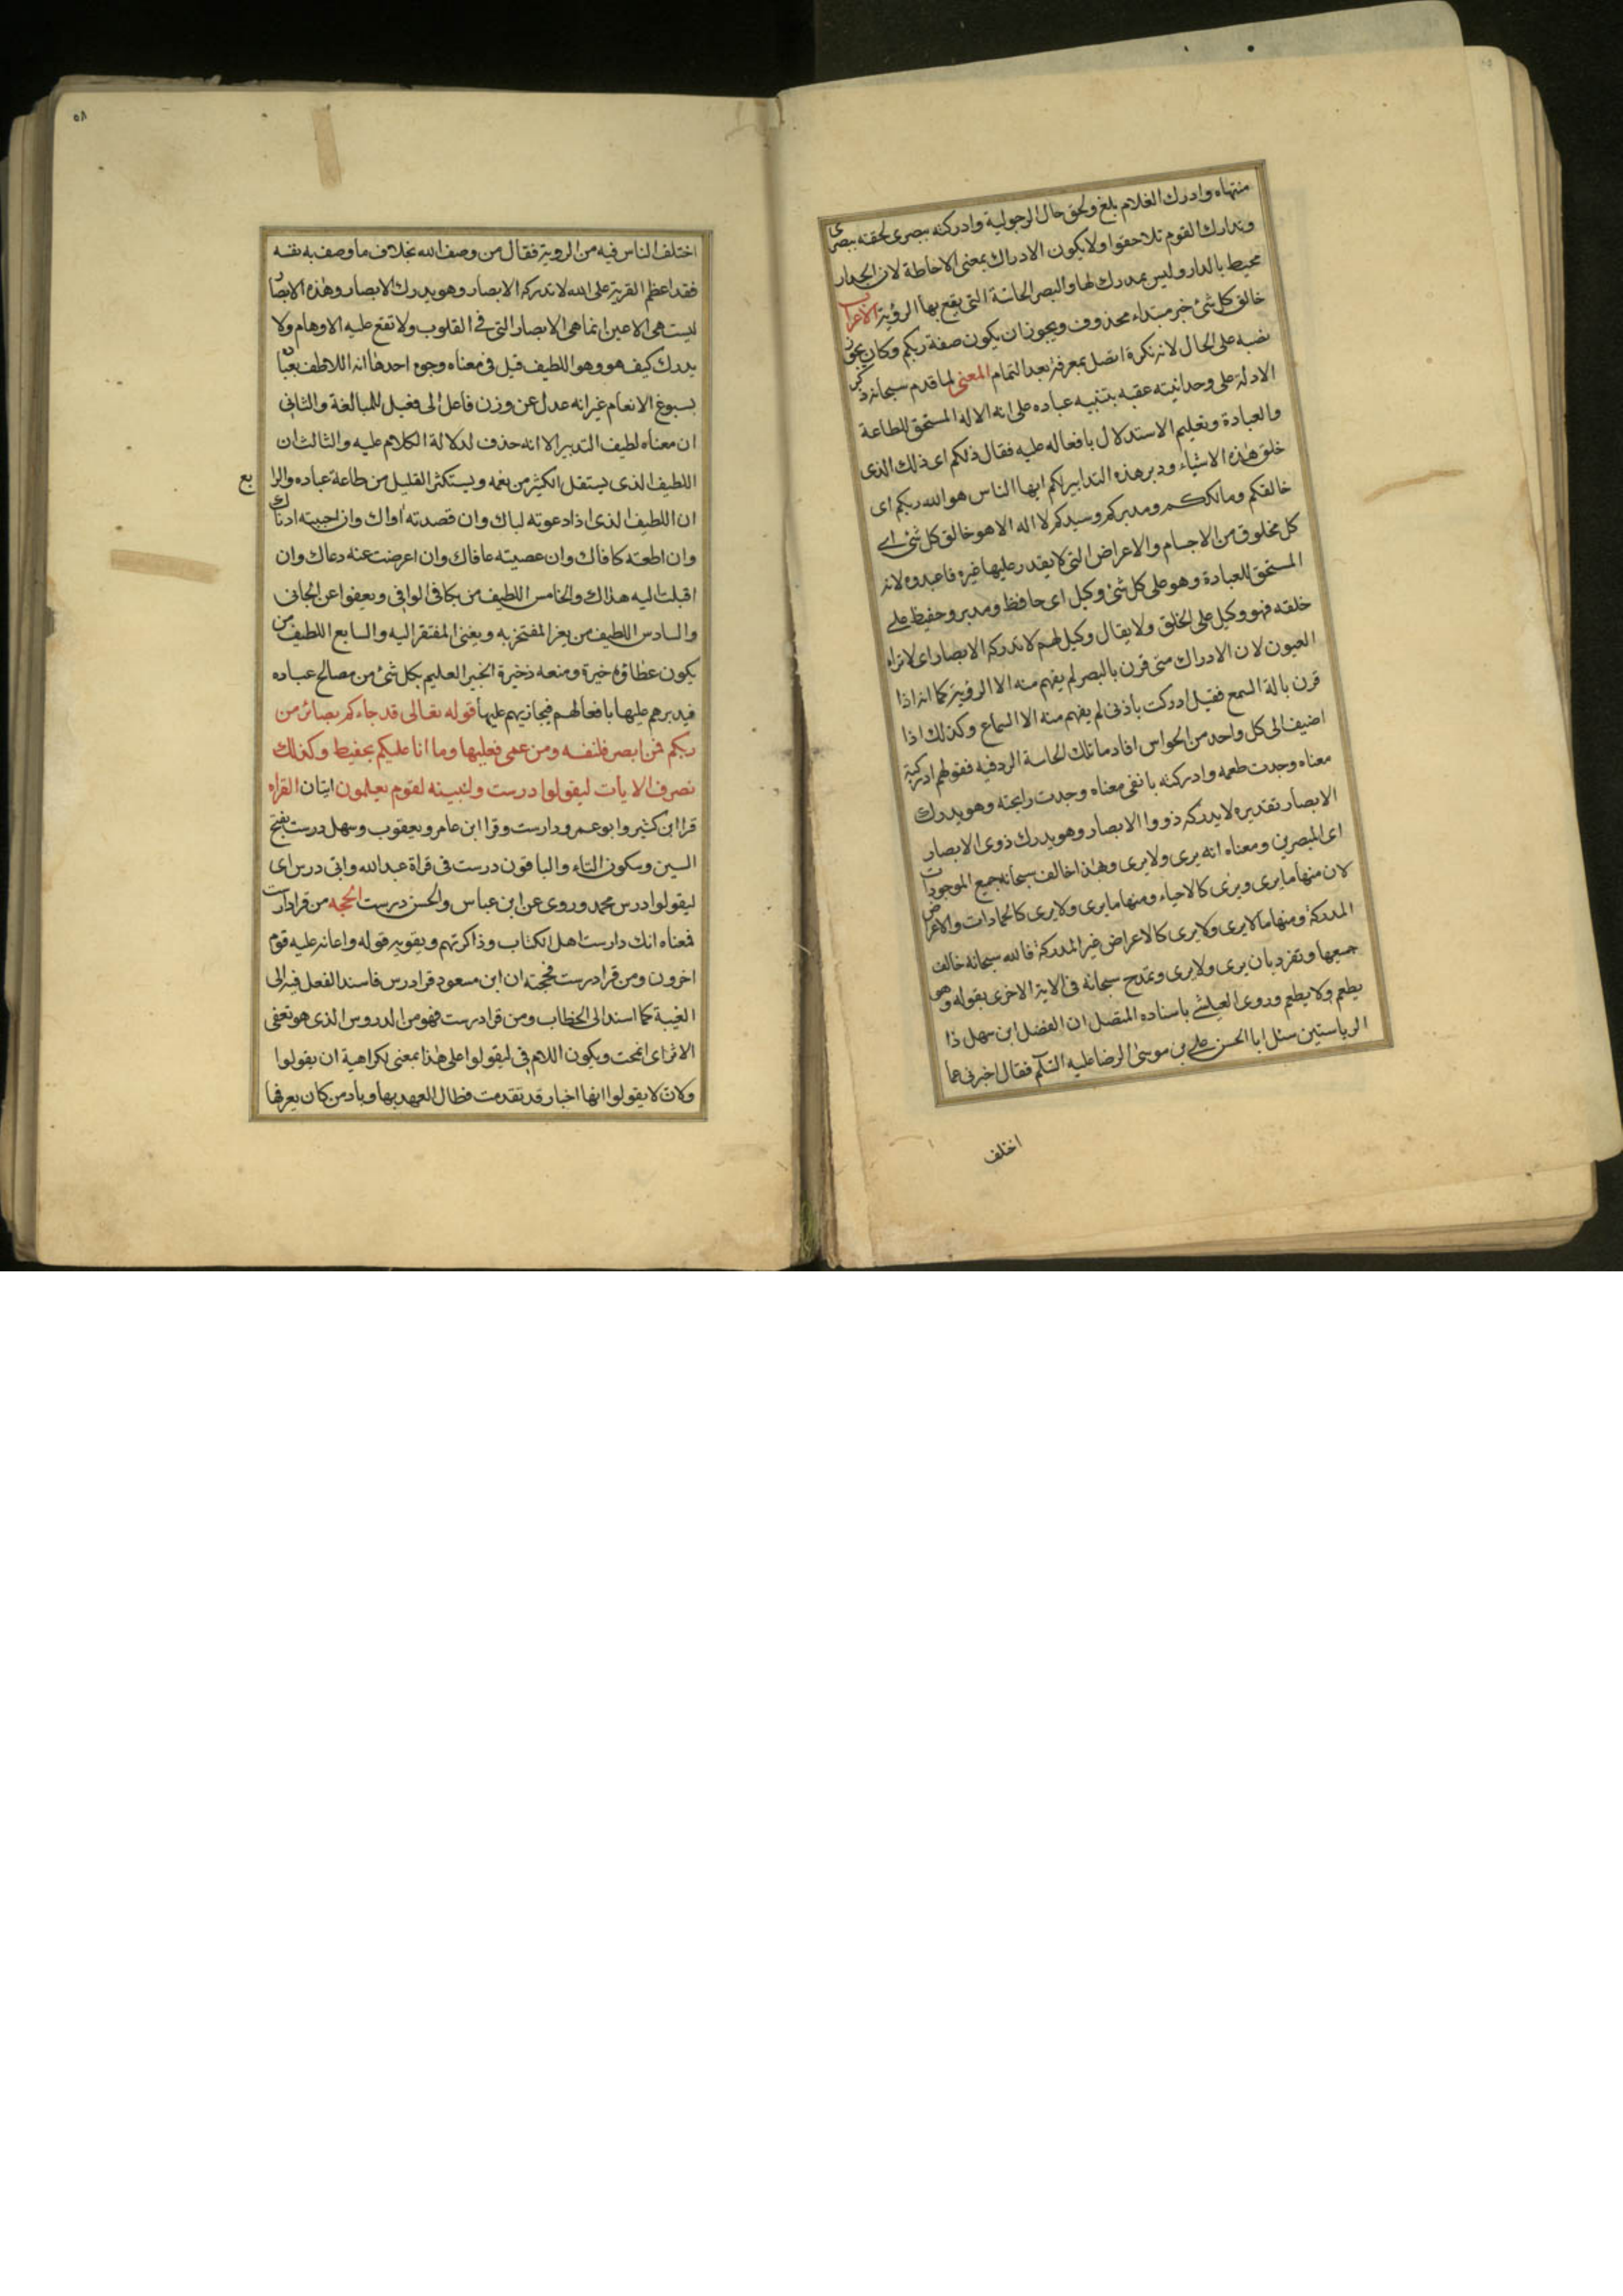 منتهاه وادرك الغلام بلغ ولحق حال الرجولية وادركته ببصرى لحقته ببصرى
وتدارك القوم تلاحقوا ولا يكون الادراك بمعنى الاحاطة لان الجدار
محيط بالدار وليس بمدرك لها والبصر الحاسة التى يقع بها الرؤية الاعراب
خالق كل شئ خبر مبتداء محذوف ويجوز ان يكون صفة ربكم وكان يجوز
نصبه على الحال لانه نكرة اتصل بمعرفة بعد التمام المعنى لما قدم سبحانه ذكر
الادلة على وحدانيته عقبه بتنبيه عباده على انه الاله المستحق للطاعة
والعبادة وتعليم الاستدلال بافعاله عليه فقال ذلكم اى ذلك الذى
خلق هذه الاشياء ودبر هذه التدابير لكم ايها الناس هو الله ربكم اى
خالقكم ومالككم ومدبركم وسيدكم لا اله الا هو خالق كل شئ اے
كل مخلوق من الاجسام والاعراض التى لا يقدر عليها غيره فاعبدوه لانه
المستحق للعبادة وهو على كل شئ وكيل اى حافظ ومدبر وحفيظ على
خلقه فهو وكيل على الخلق ولا يقال وكيل لهم لا تدركه الابصار اى لا تراه
العيون لان الادراك متى قرن بالبصر لم يفهم منه الا الرؤية كما انه اذا
قرن بالة السمع فقيل ادركت باذنى لم يفهم منه الا السماع وكذلك اذا
اضيف الى كل واحد من الحواس افاد ما تلك الحاسة الة فيه فقولهم ادركته
معناه وجدت طعمه وادركته بانفى معناه وجدت رايحته وهو يدرك
الابصار تقديره لا يدركه ذووا الابصار وهو يدرك ذوى الابصار
اى المبصرين ومعناه انه يرى ولا يرى وبهذا خالف سبحانه جميع الموجودات
لان منها ما يرى ويرى كالاحياء ومنها ما يرى ولا يرى كالجمادات والاعراض
المدركة ومنها ما لا يرى ولا يرى كالاعراض غير المدركة فالله سبحانه خالف
جميعها وتفرد بان يرى ولا يرى وتمدح سبحانه فى الاية الاخرى بقوله وهو
يطعم ولا يطعم وروى العياشے باسناده المتصل ان الفضل ابن سهل ذا
الرياستين سئل ابا الحسن على بن موسى الرضا عليه السلام فقال اخبرنى عما
اختلف
٥٨
اختلف الناس فيه من الروية فقال من وصف الله بخلاف ما وصف به نفسه
فقد اعظم الفرية على الله لا تدركه الابصار وهو يدرك الابصار وهذه الابصار
ليست هى الاعين انما هى الابصار التى فى القلوب ولا تقع عليه الاوهام ولا
يدرك كيف هو وهو اللطيف قيل فى معناه وجوه احدها انه اللاطف بعباده
بسبوغ الانعام غير انه عدل عن وزن فاعل الى فعيل للمبالغة والثانى
ان معناه لطيف التدبير الا انه حذف لدلالة الكلام عليه والثالث ان
اللطيف الذى يستقل الكثير من نعمه ويستكثر القليل من طاعة عباده والرابع
ان اللطيف الذى اذا دعوته لباك وان قصدته اواك وان احببته ادناك
وان اطعته كافاك وان عصيته عافاك وان اعرضت عنه دعاك وان
اقبلت اليه هداك والخامس اللطيف من يكافى الوافى ويعفوا عن الجانى
والسادس اللطيف من يعز المفتخر به ويغنى المفتقر اليه والسابع اللطيف من
يكون عطاؤه خيرة ومنعه ذخيرة الخبير العليم بكل شئ من مصالح عباده
فيدبرهم عليها بافعالهم فيجازيهم عليها قوله تعالى قد جاءكم بصائر من
ربكم فمن ابصر فلنفسه ومن عمى فعليها وما انا عليكم بحفيظ وكذلك
نصرف الايات ليقولوا درست ولنبينه لقوم يعلمون ايتان القراه
قرا ابن كثير وابو عمرو دارست وقرا ابن عامر ويعقوب وسهل درست بفتح
السين وسكون التاء والباقون درست فى قراة عبد الله وابى درس اى
ليقولوا درس محمد وروى عن ابن عباس والحسن درست الحجه من قرا دارست
فمعناه انك دارست اهل الكتاب وذاكرتهم ويقويه قوله واعانه عليه قوم
اخرون ومن قرا درست فحجته ان ابن مسعود قرا درس فاسند الفعل فيه الى
الغيبة كما اسند الى الخطاب ومن قرا درست فهو من الدروس الذى هو تعفى
الاثر اى انمحت ويكون اللام فى ليقولوا على هذا بمعنى لكراهية ان يقولوا
ولان لا يقولوا انها اخبار قد تقدمت فطال العهد بها وباد من كان يعرفها